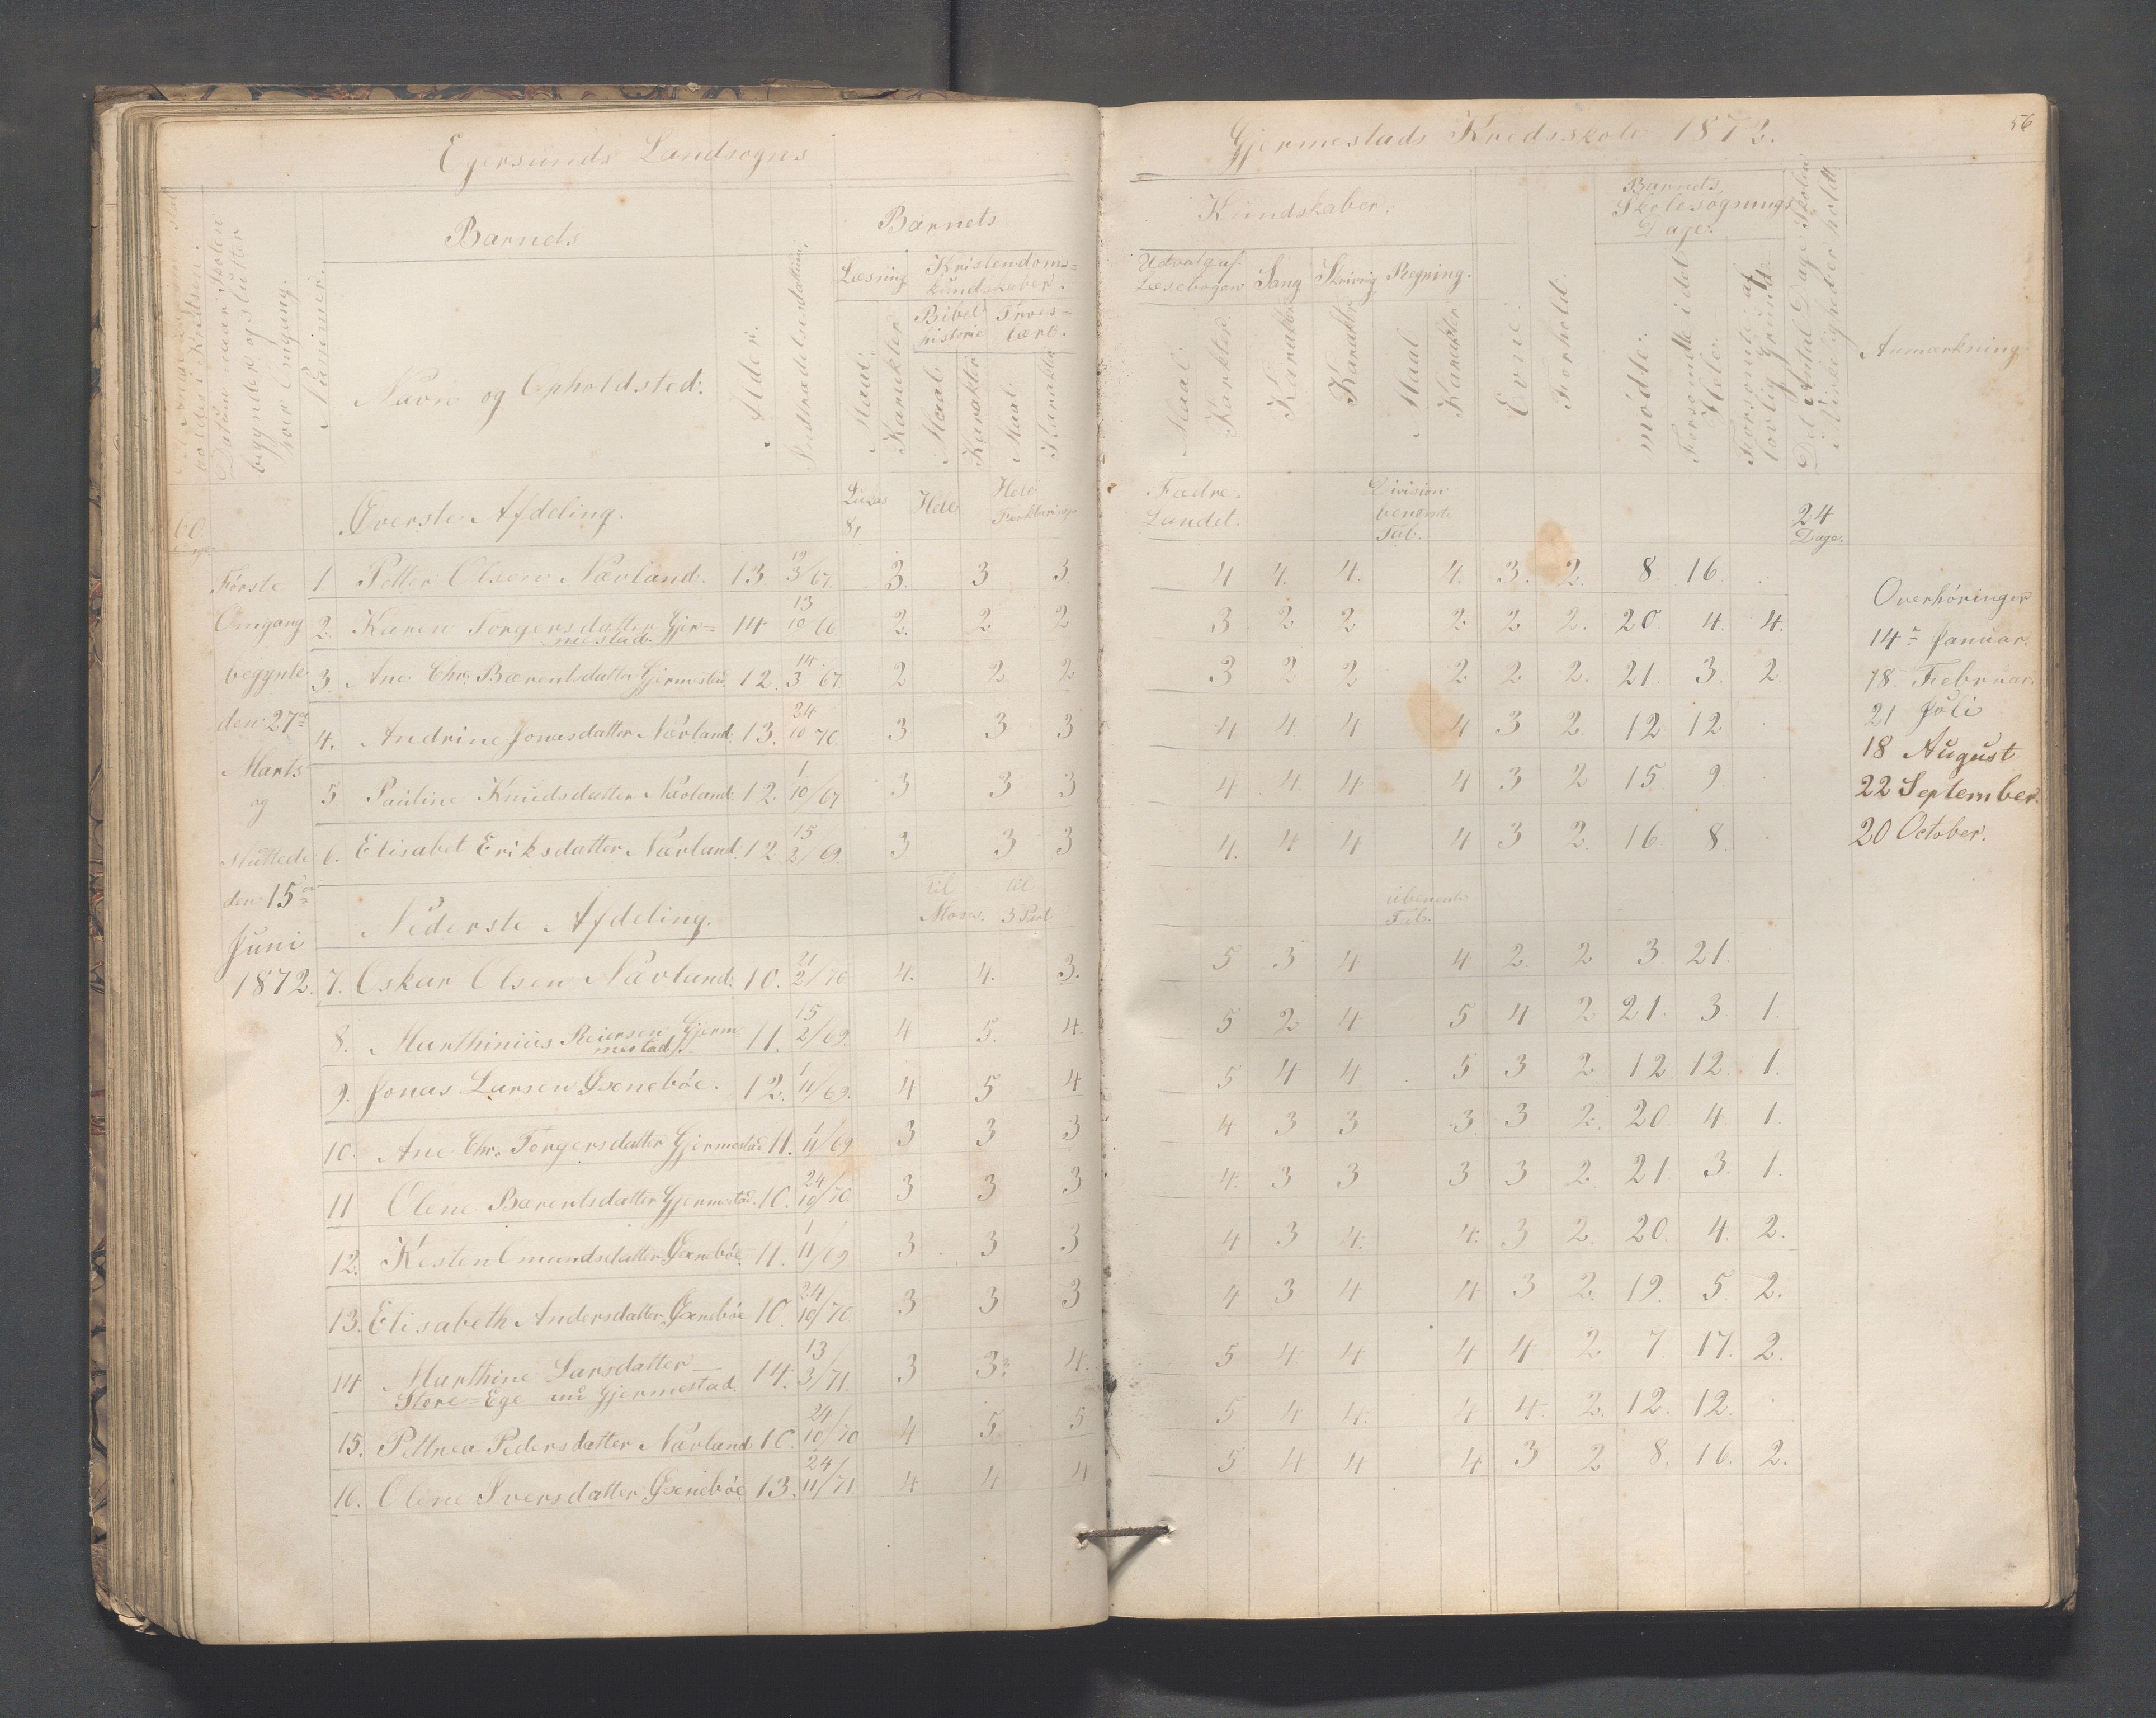 Egersunds Landsogns
Gjermestads Kredsskole 1872.
56
holdes i Kredsen.
Datum naar Skolen
begynder og slutter
hver Omgang.
Nummer.
Barnets
Navn og Opholdssted.
Alder.
Indtrædelsesdatum.
Barnets
Læsning
Kristendoms=
kundskaber.
Bibel
historie
Troes=
lære.
Maal
Karakter
Maal
Karakter
Maal
Karakter
Kundskaber.
Udvalg af
Læsebogen
Sang
Skrivng
Regning.
Maal
Karakter
Karakter
Karakter
Maal
Karakter
Evne
Forhold.
Barnets
Skolesøgnings
Dage.
mødte.
Forsømte i det
Hele.
Forsømte af
lovlig Grund
Det Antal Dage Skolen
i Virkeligheden holdt
Anmærkning
60
Øverste Afdeling.
Lucas
8,
Hele
Hele
Forklaringen
Fædre
Landet.
Division
benævnte
Tal.
24
Dage.
Første
Omgang
begynte
den 27de
Marts
og
sluttede
den 15de
Juni
1872.
1. Petter Olsen Nævland. 13. 19/3/67. 3. 3 3. 4 4. 4. 4. 3. 2. 8. 16
2. Karen Torgersdatter Gjer=
mestad. 14 13/10 66 2. 2 2 3 2 2 2 2 2. 20 4. 4.
3. Ane Chr. Bærentsdatter Gjermestad. 12. 14/3 67. 2 2 2 3 2 2 2 2 2. 21. 3. 2
4. Andrine Jonasdatter Nævland. 13. 24/10 70. 3 3 3 4 4. 4 4 3 2. 12 12
5 Pauline Knudsdatter Nævland. 12. 1/10/67 3 3 3 4 4. 4 4 3 2 15. 9
6. Elisabet Eriksdatter Nævland. 12 15/2/69. 3 3 3 4. 4 4 4 3 2. 16 8.
Nederste Afdeling.
til
Moses.
til
3 Part
ubenævnte
Tal.
7. Oskar Olsen Nævland. 10. 21/2/70 4. 4. 3. 5 3 4 4 2. 2 3 21.
8. Marthinius Reiersen Gjerm
mestad. 11. 15/2/69. 4 5. 4. 5 2 4 5 4 2 21. 3. 1.
9. Jonas Larsen Øxnebøe. 12. 1/11/69. 4 5 4 5 4 4 5 3 2 12 12. 1.
10. Ane Chr. Torgersdatter Gjermestad 11. 1/11/69 3 3 3 4 3 3 3 3 2. 20 4. 1.
11 Olene Bærentsdatter Gjermestad. 10. 24/10/70 3 3 3 4. 3 3 3 3 2. 21. 3. 1.
12. Kesten Omundsdatter Øxnebøe. 11. 1/11/69 3 3 3 4 3 4. 4. 3 2. 20. 4. 2.
13. Elisabeth Andersdatter Øxnebøe 10. 24/10/70 3 3 3 4 3 4 4 3 2. 19. 5. 2.
14 Marthine Larsdatter
Store=Ege nu Gjermestad. 14. 13/3/71. 3 3 4. 5 4 4 4 4 2 7. 17. 2.
15. Pettrea Pedersdatter Nævland 10. 24/10/70 4 5 5 5 4 4. 4 4. 2. 12. 12.
16. Olene Iversdatter Øxnebøe. 13. 24/11/71 4 4 4 5 4 4 4 3 2 8. 16. 2.
Overhøringer
14de Januar.
18 Februar.
21 Juli
18 August
22 September.
20 October.